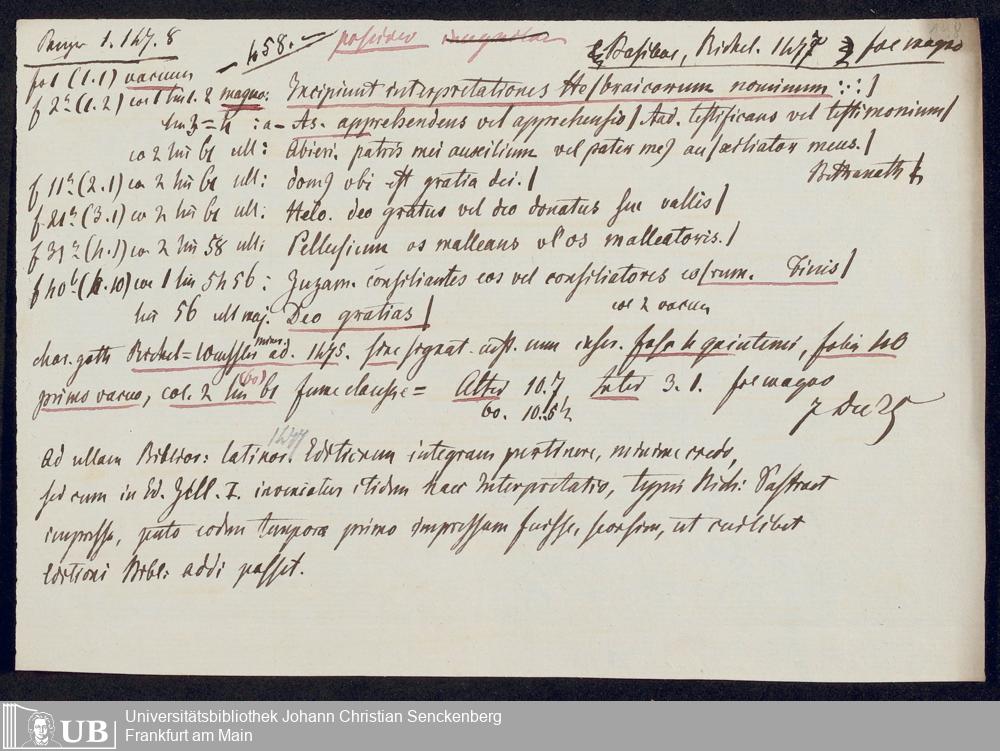 Panzer 1. 147. 8 — 458. — possideo Basileae, Richel. 1477 fol magno
fol 1 (1.1) vacuum
f 2a (1.2) col 1 lin. 2 magno: Incipiunt interpretationes He/braicorum nominum :·: /
lin 3 = 4 : a— As. apprehendens vel apprehensio / Aad. testificans vel testimonium /
co 2 lin 61 ult: Abieri. patris mei auxilium vel pater me9 au/xiliator meus. /
f 11a (2.1) co 2 lin 61 ult: dom9 vbi est gratia dei. / Bethanath
f 21a (3.1) co 2 lin 61 ult: Helo. deo gratus vel deo donatus siue vallis /
f 31a (4.1) co. 2 lin 58 ult: Pellusium os malleans vl' os malleatoris. /
f 40b (4.10) col 1 lin 54 56: Zuzam. consiliantes eos vel consiliatores eo/rum. Finis /
lin 56 ult maj. Deo gratias / col 2 vacua
char. goth Richel = Wenssler minus ad. 1475. sine signat. cust. num inser. fasc 4 quinterni, foliis 40
primo vacuo, col. 2 lin 61 (60) summe clausae = Alter 10.7 Inter 3. 1. fol magno
60. 10.6½ 7 Dec 25
Ad ullam Biblior: latinor. 1477 Editionum integram pertinere, minime credo,
sed cum in Ed. Zell. I. inveniatur itidem haec Interpretatio, typis Nich:
impressa, puto eodem tempore primo impressam fuisse, seorsim, ut cuilibet
Editioni Bibl: addi posset.
UB Universitätsbibliothek Johann Christian Senckenberg
Frankfurt am Main